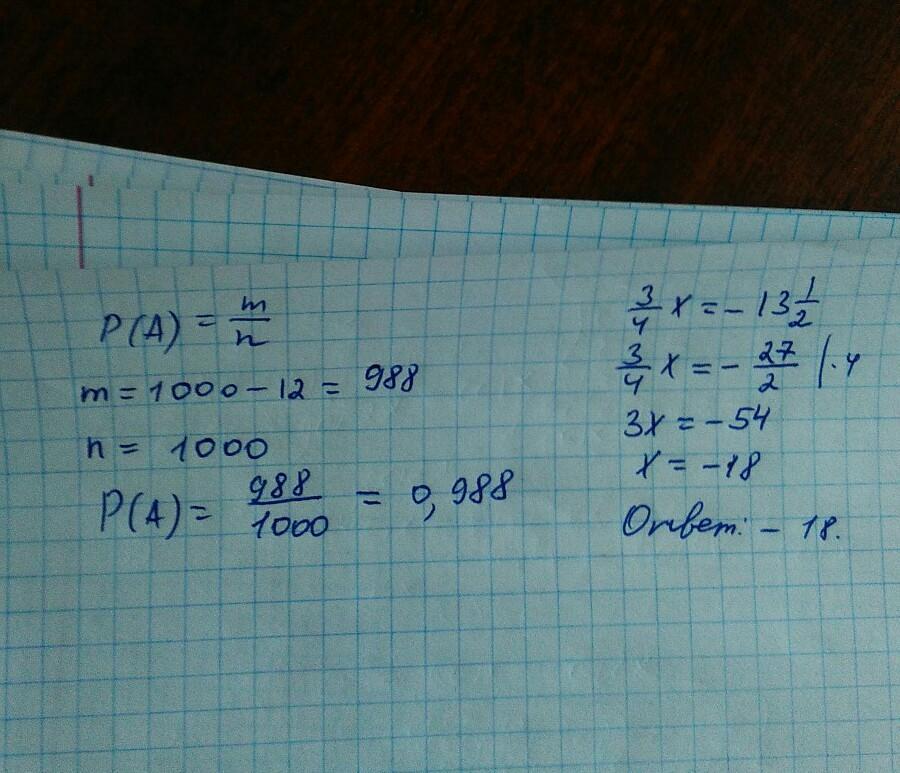 P(A) = m/n
m = 1000 - 12 = 988
n = 1000
P(A) = 988/1000 = 0,988
3/4 x = - 13 1/2
3/4 x = - 27/2 | · 4
3x = - 54
x = - 18
Ответ: - 18.